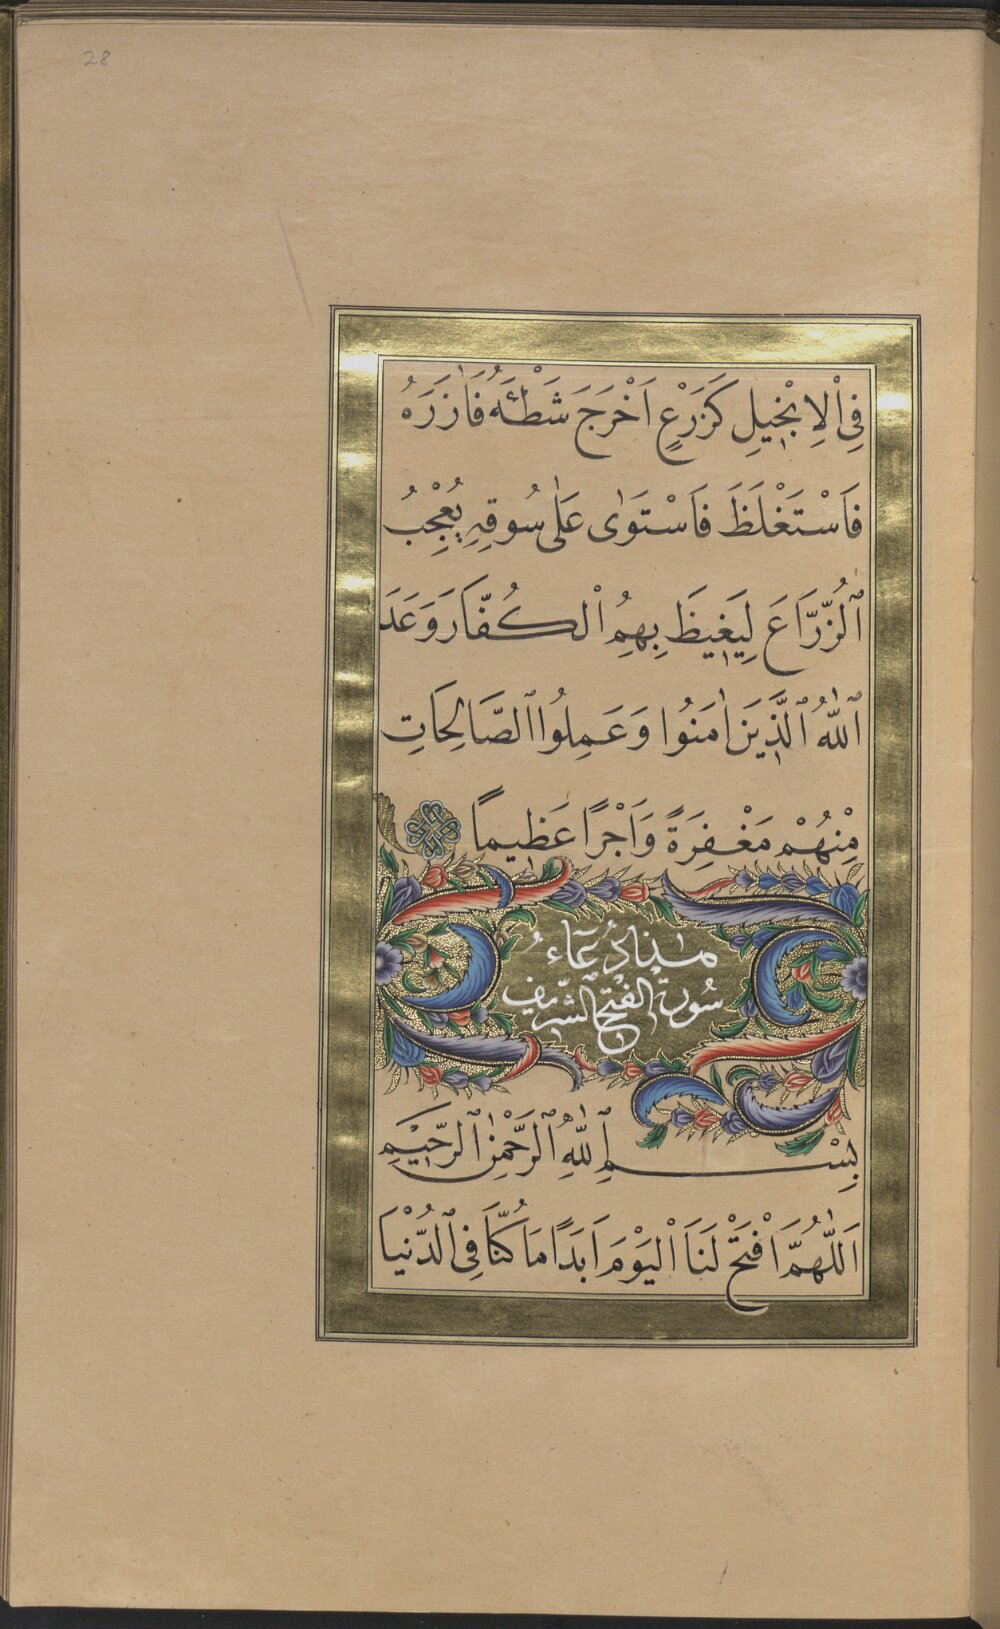 28
فِى الْاِنْجٖيلِ كَزَرْعٍ اَخْرَجَ شَطْـَٔهُ فَاٰزَرَهُ
فَاسْتَغْلَظَ فَاسْتَوٰى عَلٰى سُوقِهٖ يُعْجِبُ
ٱلزُّرَّاعَ لِيَغٖيظَ بِهِمُ الْكُفَّارَ وَعَدَ
ٱللّٰهُ ٱلَّذٖينَ اٰمَنُوا وَعَمِلُوا ٱلصَّالِحَاتِ
مِنْهُمْ مَغْفِرَةً وَاَجْرًا عَظٖيمًا
هٰذَا دُعَاءُ
سُورَةِ الْفَتْحِ الشَّرٖيفِ
بِسْمِ ٱللّٰهِ ٱلرَّحْمٰنِ ٱلرَّحٖيمِ
اَللّٰهُمَّ افْتَحْ لَنَا الْيَوْمَ اَبَدًا مَا كُنَّا فِى ٱلدُّنْيَا